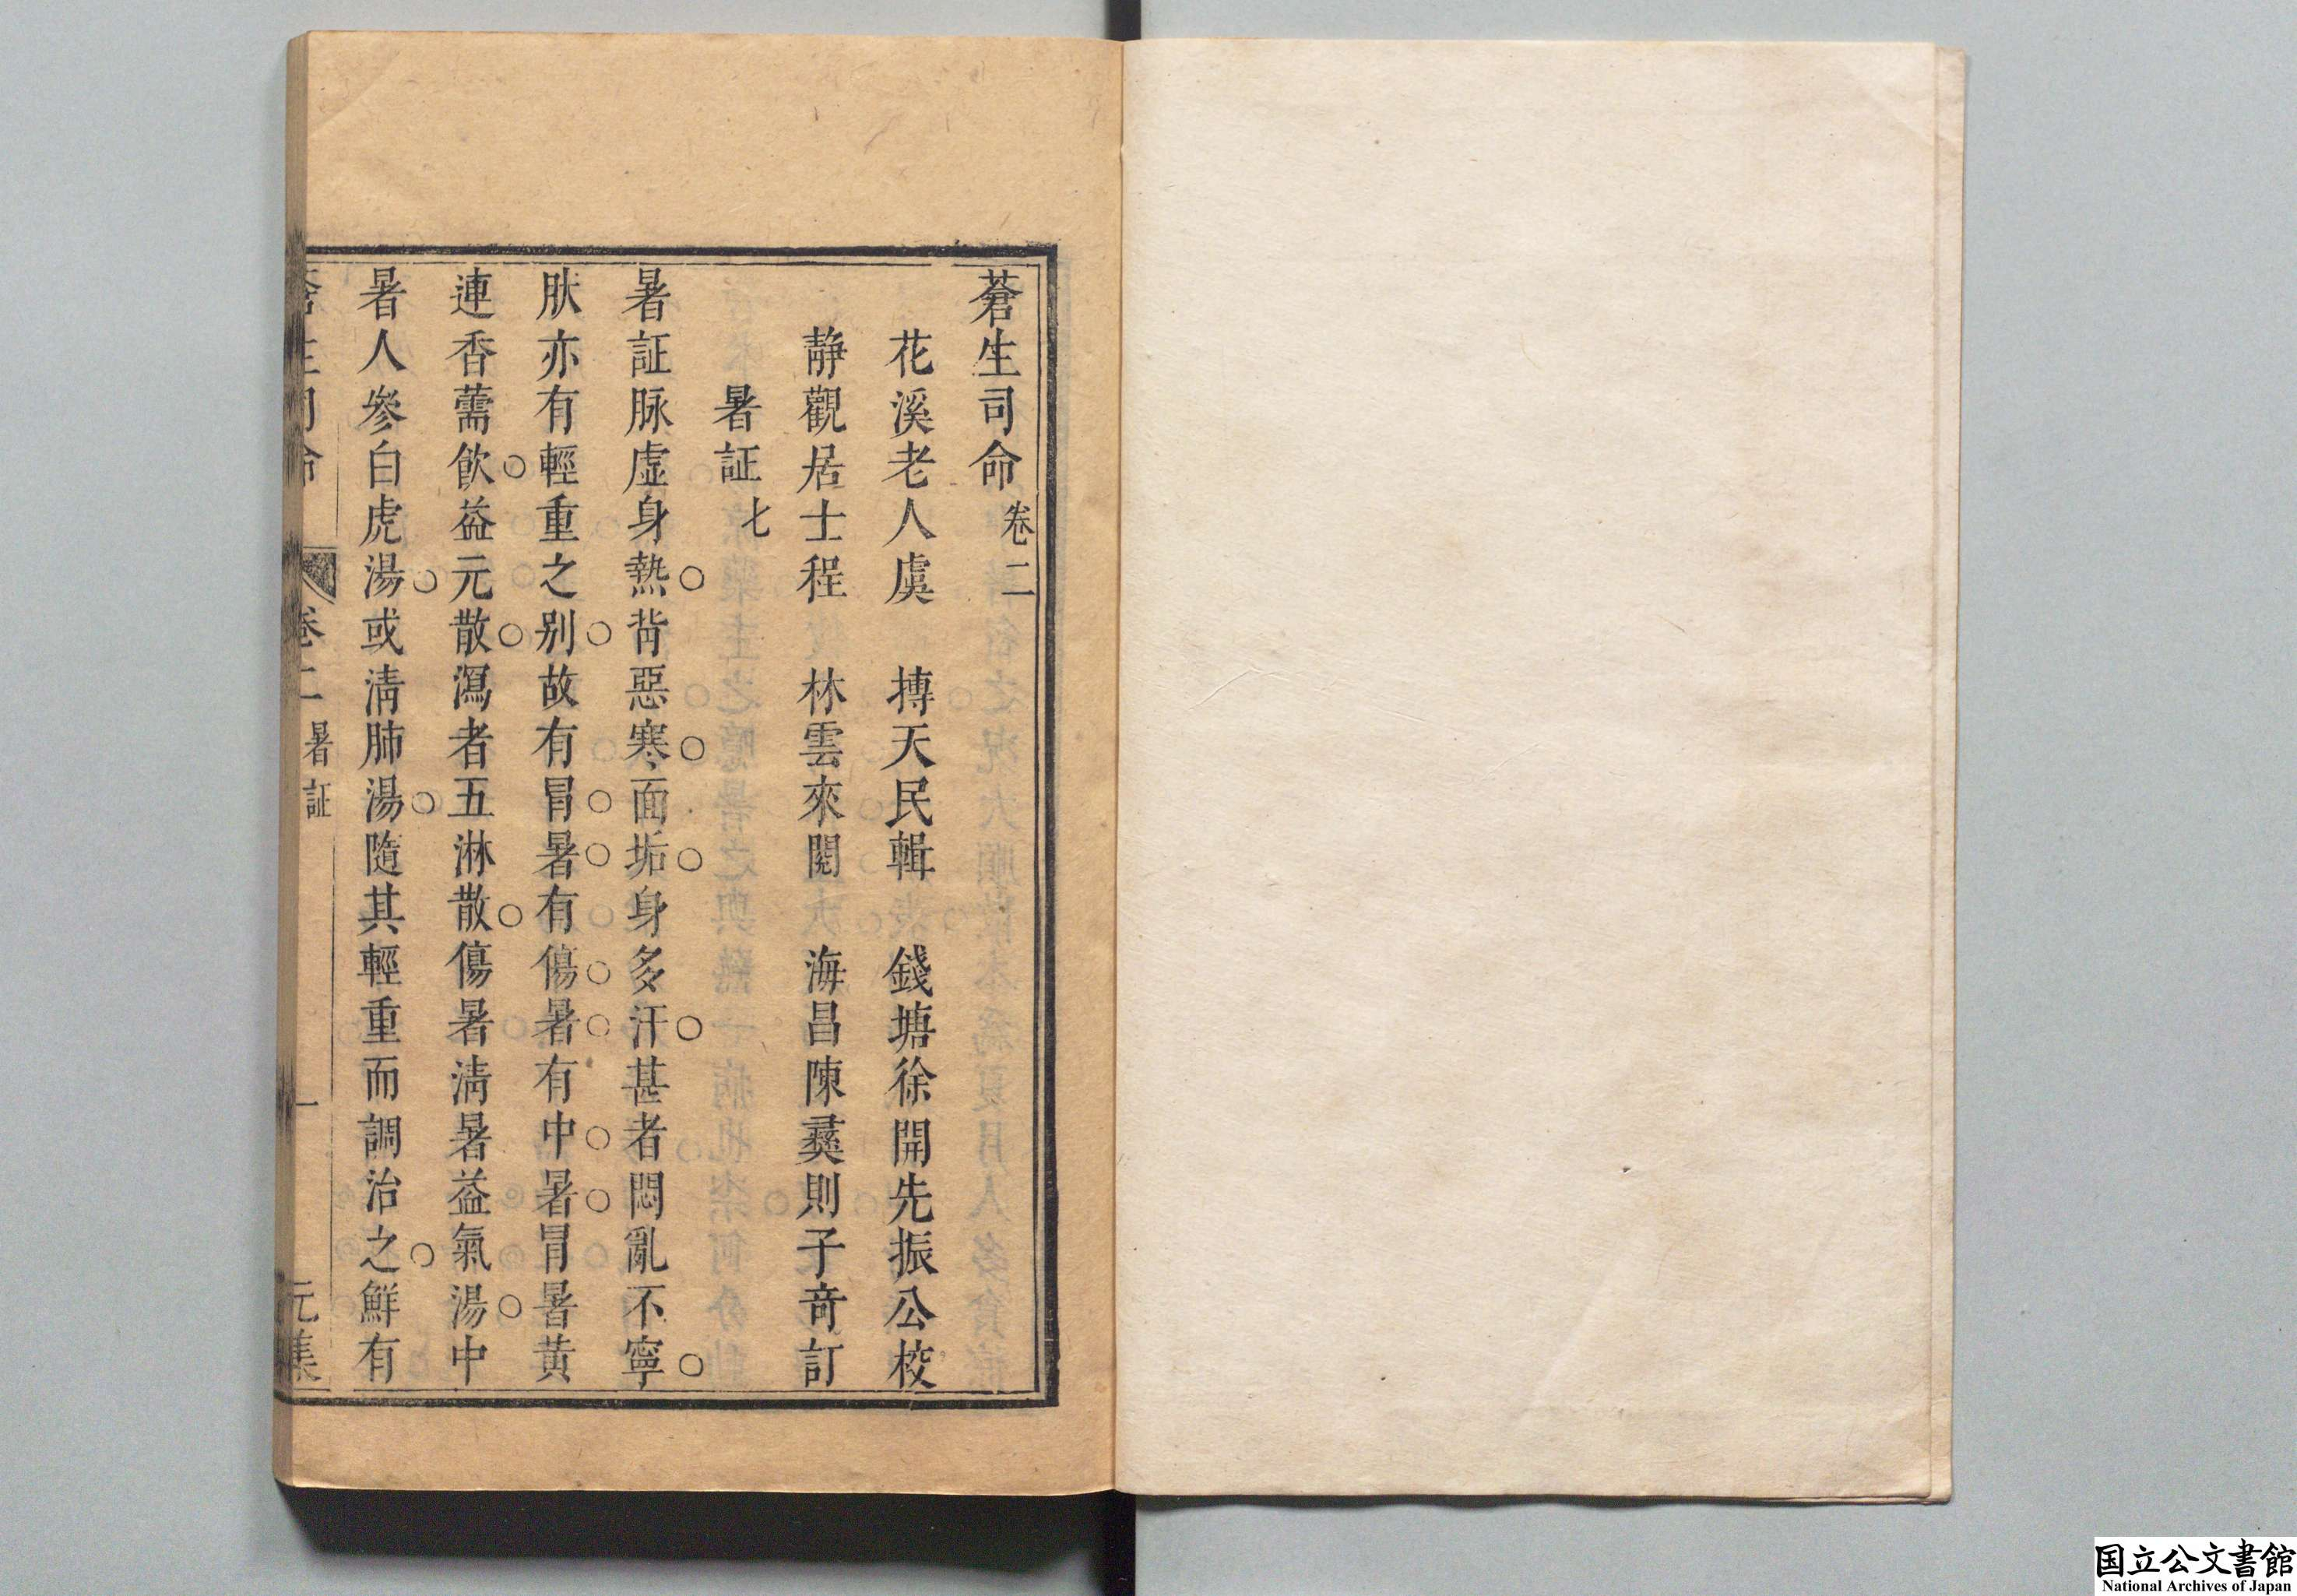 蒼生司命 卷二
花溪老人虞　摶天民輯　錢塘徐開先振公校
靜觀居士程　林雲來閱　海昌陳彞則子奇訂
暑証 七
暑証脉虛身熱○背惡寒○面垢○身多汗○甚者悶亂不寧○
肤亦有輕重之别○故有冐○暑○有傷○暑○有中○暑○冐暑黃
連香薷飲○益元散○瀉者五淋散○傷暑清暑益氣湯○中
暑人參白虎湯○或清肺湯○隨其輕重而調治之○鮮有
蒼生司命 卷二 暑証 一 元集
国立公文書館
National Archives of Japan